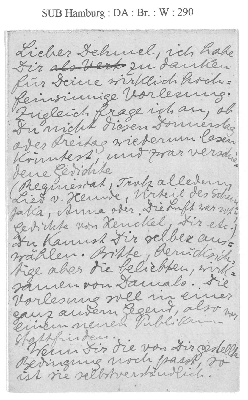 SUB Hamburg : DA : Br. : W : 290
Lieber Dehmel, ich habe
Dir zu danken
für Deine wirklich hoch-
feinsinnige Vorlesung.
Zugleich frage ich an, ob
Du nicht diesen Donnerstag
oder Freitag wiederum lesen
könntest, und zwar verschie-
dene Gedichte
Trotz alledem,
Lied v. Hemde,
Anna oder. Die Luft war
Gedichte von Henckel, Dir etc.)
Du kannst Dir selber aus-
wählen. Bitte, berücksich-
tige aber die beliebten, wirk-
samen von Damals. Die
Vorlesung soll in einer
ganz andern Gegend, also vor
einem neuen Publikum
stattfinden.
Wenn Dir die von Dir gestellte
Bedingung noch passt, so
ist sie selbstverständlich.